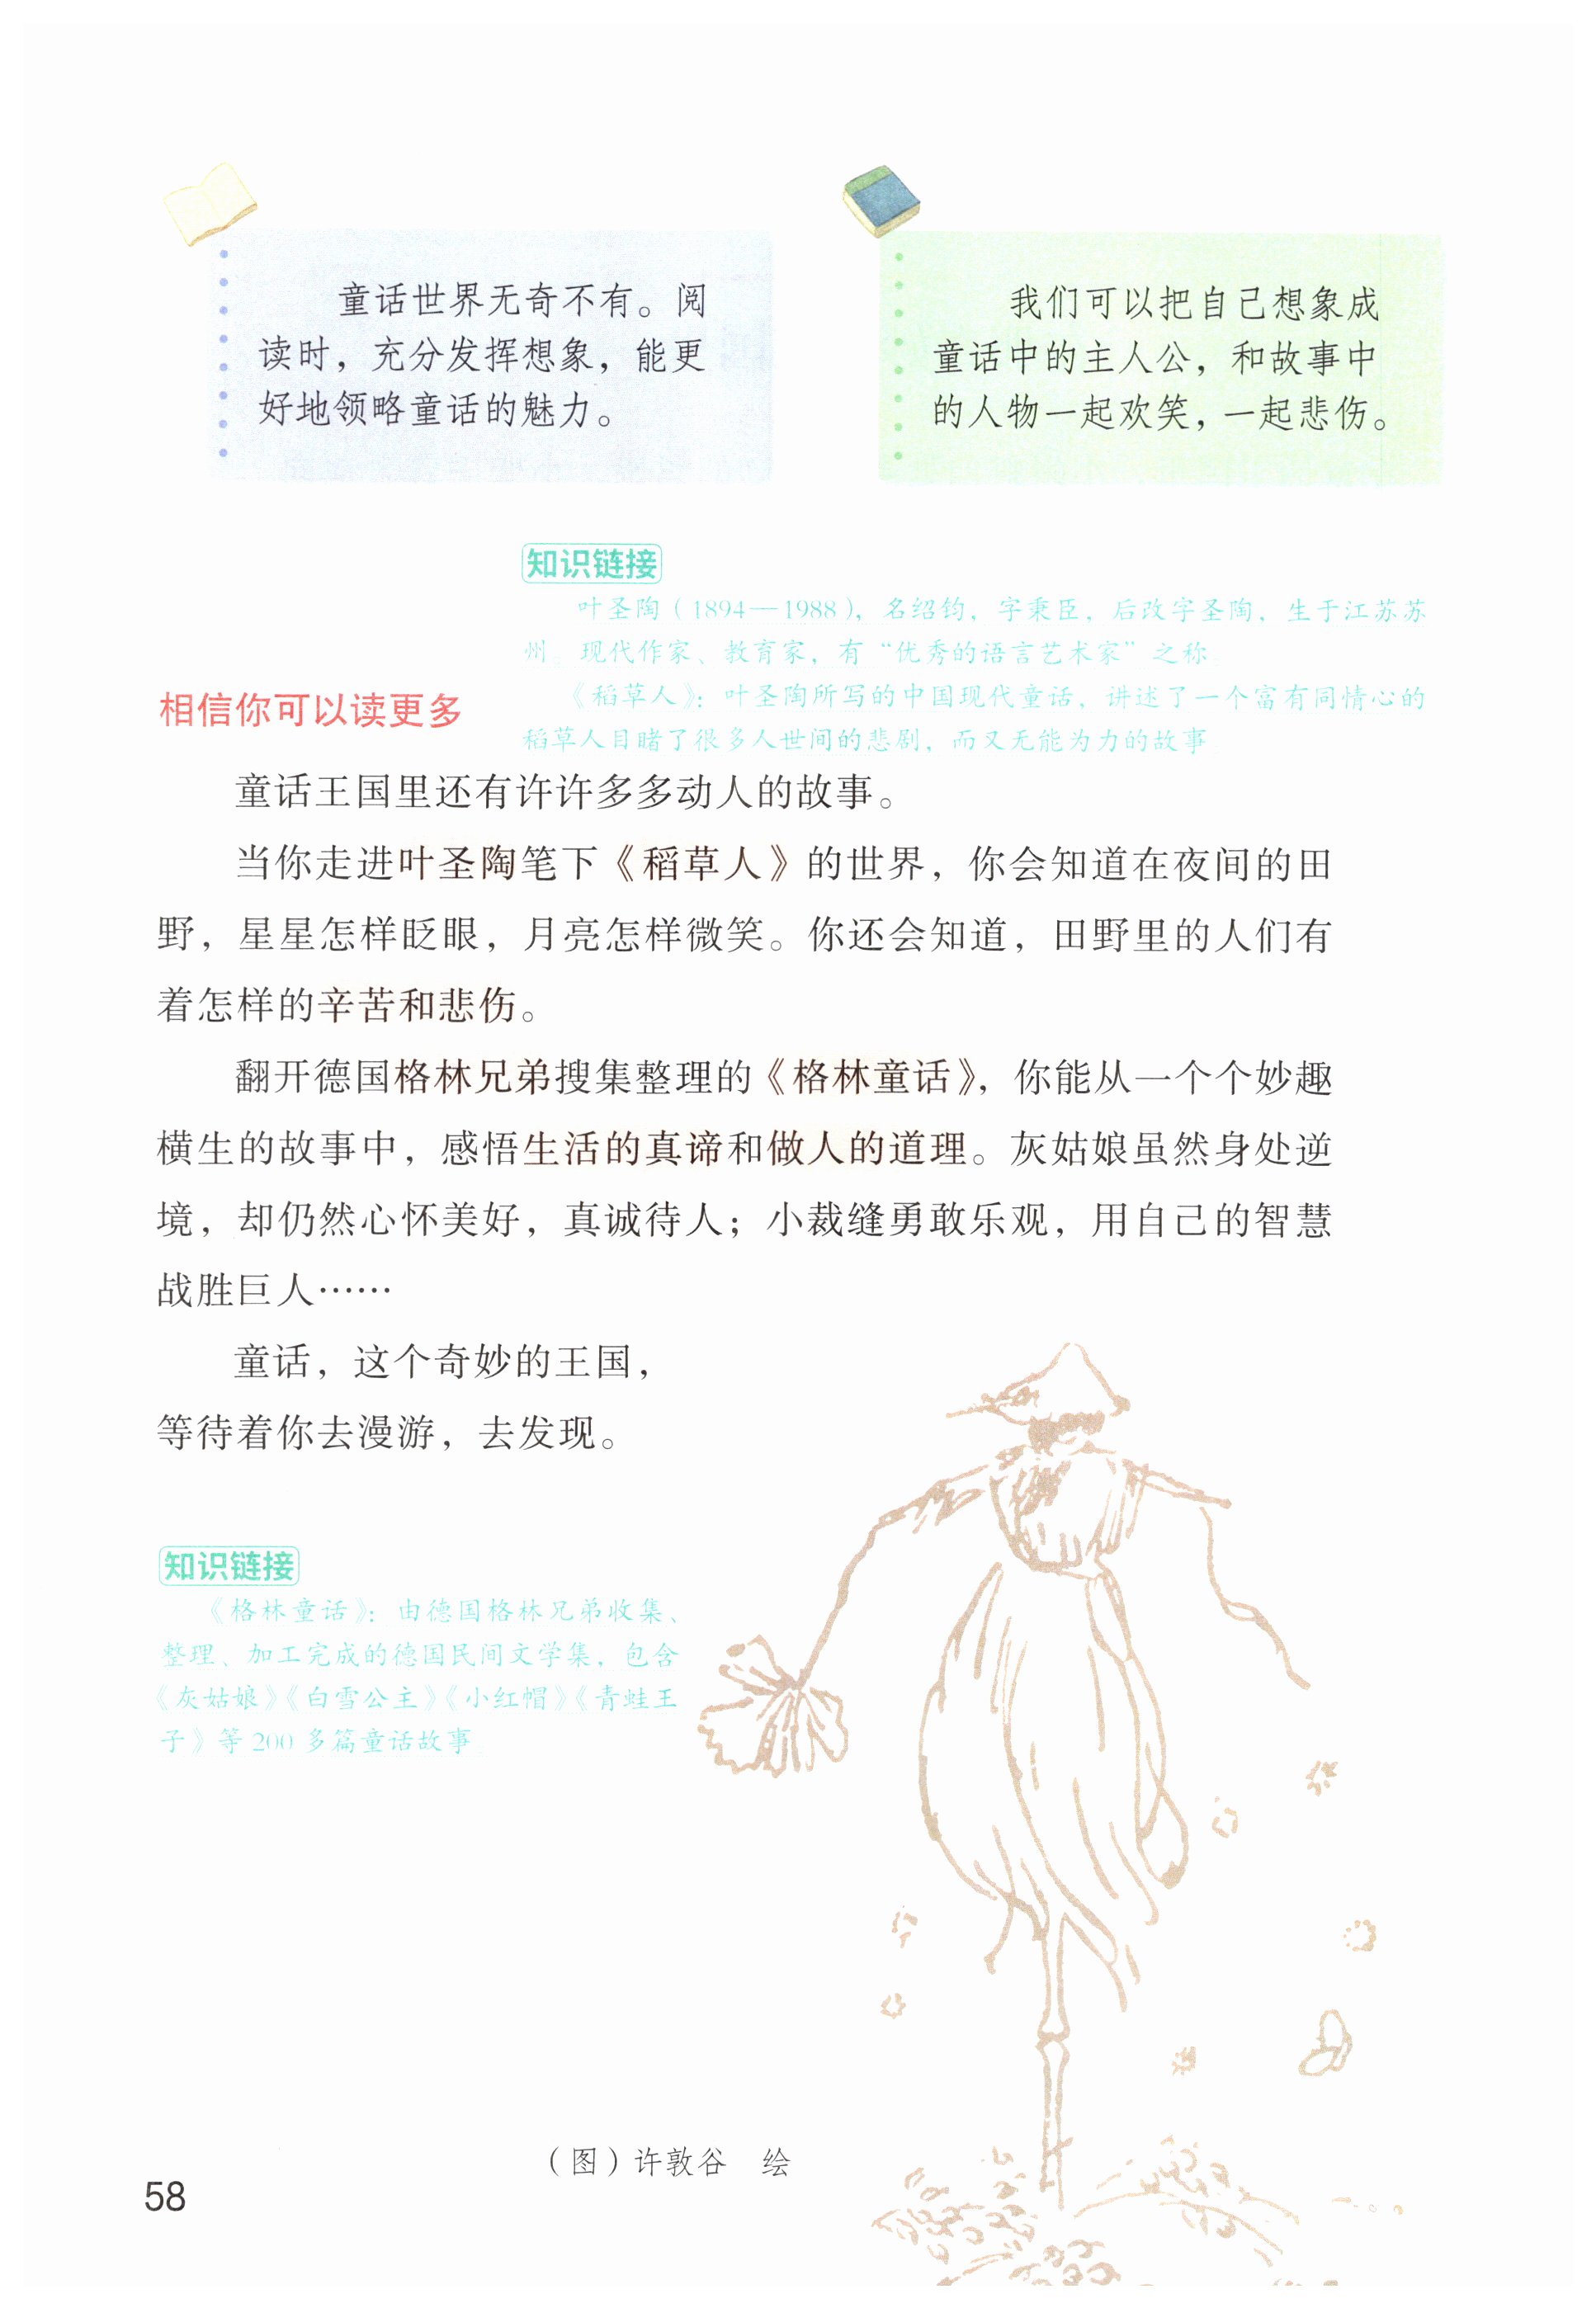 童话世界无奇不有。阅
读时，充分发挥想象，能更
好地领略童话的魅力。
我们可以把自己想象成
童话中的主人公，和故事中
的人物一起欢笑，一起悲伤。
知识链接
叶圣陶（1894—1988），名绍钧，字秉臣，后改字圣陶，生于江苏苏
州。现代作家、教育家，有“优秀的语言艺术家”之称。
《稻草人》：叶圣陶所写的中国现代童话，讲述了一个富有同情心的
稻草人目睹了很多人世间的悲剧，而又无能为力的故事
相信你可以读更多
童话王国里还有许许多多动人的故事。
当你走进叶圣陶笔下《稻草人》的世界，你会知道在夜间的田
野，星星怎样眨眼，月亮怎样微笑。你还会知道，田野里的人们有
着怎样的辛苦和悲伤。
翻开德国格林兄弟搜集整理的《格林童话》，你能从一个个妙趣
横生的故事中，感悟生活的真谛和做人的道理。灰姑娘虽然身处逆
境，却仍然心怀美好，真诚待人；小裁缝勇敢乐观，用自己的智慧
战胜巨人……
童话，这个奇妙的王国，
等待着你去漫游，去发现。
知识链接
《格林童话》：由德国格林兄弟收集、
整理、加工完成的德国民间文学集，包含
《灰姑娘》《白雪公主》《小红帽》《青蛙王
子》等 200 多篇童话故事。
（图）许敦谷　绘
58